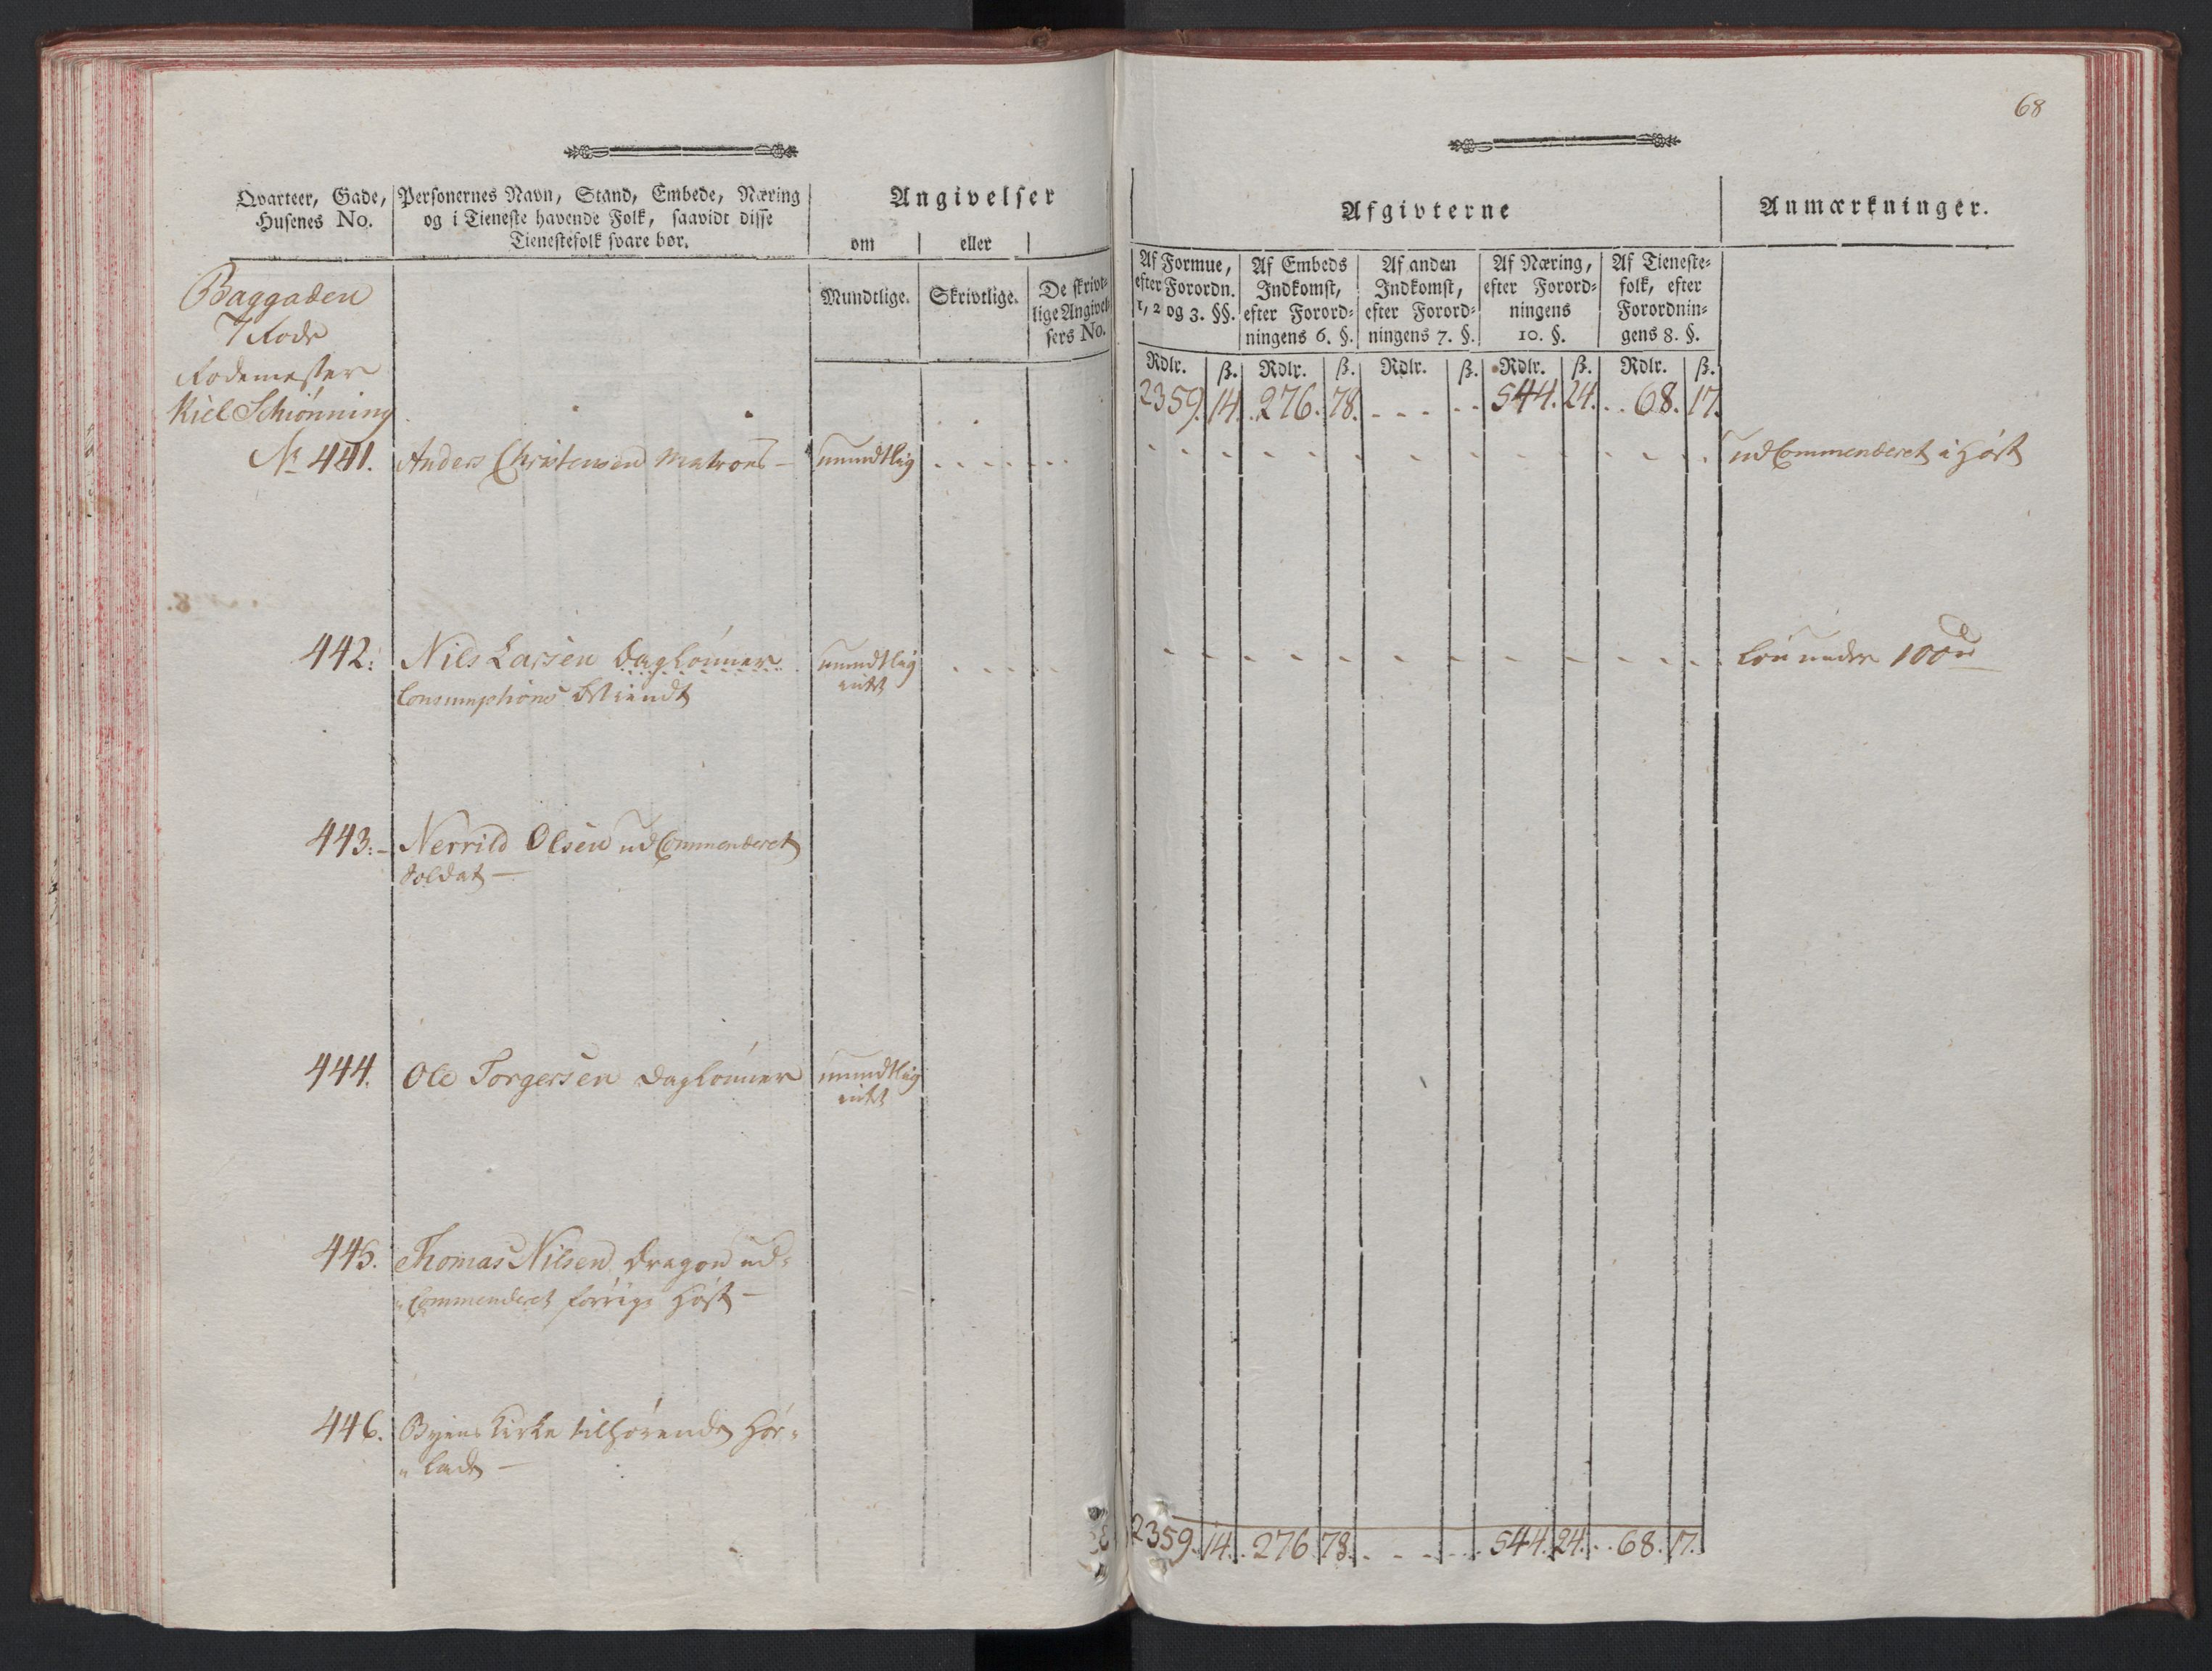 68
Qvarteer, Gade,
Husenes No.
Personernes Navn, Stand, Embede, Næring
og i Tieneste havende Folk, saavidt disse
Tienestefolk svare bør.
Angivelser
om | eller |
Mundtlige. Skrivtlige.
De skrivt-
lige Angivel-
sers No.
Afgivterne
Anmærkninger.
Af Formue,
efter Forordn.
1, 2 og 3. §§.
Af Embeds
Indkomst,
efter Forord-
ningens 6. §.
Af anden
Indkomst,
efter Forord-
ningens 7. §.
Af Næring,
efter Forord-
ningens
10. §.
Af Tieneste-
folk, efter
Forordnin-
gens 8. §.
Rdlr. ß. Rdlr. ß. Rdlr. ß. Rdlr. ß. Rdlr. ß.
Baggaden
7 Rode
Rodemester
Kiel Schiønning
2359. 14. 276. 78. 544. 24. 68. 17.
No 441. Anders Christensen Matros – mundtlig udCommenderet i Høst
442: Nils Larsen Daglønner mundtlig Løn under 100 rd
Consumptions Betiendt
443:- Nerrild Olsen udCommenderet
Soldat –
444. Ole Torgersen Daglønner mundtlig
445. Thomas Nilsen Dragon ud-
Commenderet forrige Høst –
446. Byens Kirke tilhørende Hør-
lade –
2359. 14. 276. 78. 544. 24. 68. 17.